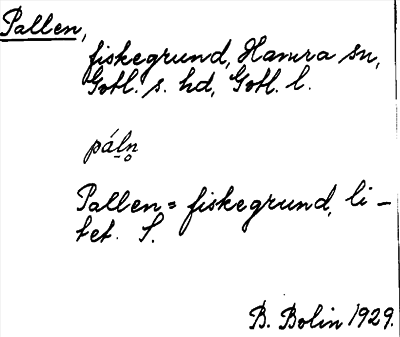 Pallen,
fiskegrund, Hamra sn,
Gotl. s. hd, Gotl. l.
páln̥
Pallen = fiskegrund, li-
tet. S.
B. Bolin 1929.